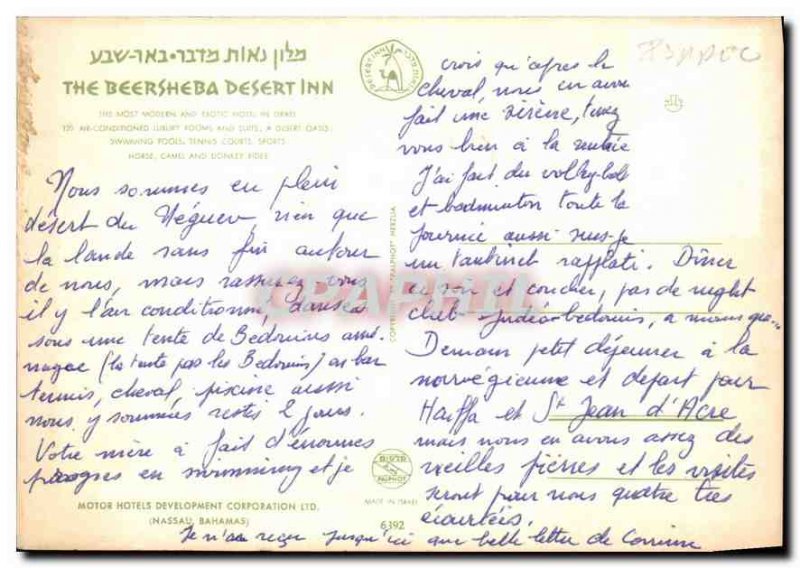 מלון נאות מדבר • באר-שבע
THE BEERSHEBA DESERT INN
THE MOST MODERN AND EXOTIC HOTEL IN ISRAEL
120 AIR-CONDITIONED LUXURY ROOMS AND SUITES, A DESERT OASIS,
SWIMMING POOLS, TENNIS COURTS, SPORTS
HORSE, CAMEL AND DONKEY RIDES
Nous sommes en plein
désert du Néguev rien que
la lande sans fin autour
de nous, mais rassurez vous
il y l'air conditionné, danses
sous une tente de Bedouins
(la tente pas les Bedouins) bar
tennis, cheval, piscine aussi
nous y sommes restés 2 jours.
Votre mère a fait d'énormes
progres en swimming et je
crois qu'après le
cheval, nous en avons
fait une sirène, tenez
vous bien à la rentrée
J'ai fait du volley-ball
et badminton toute la
journée aussi suis-je
un tantinet raplati. Dîner
ce soir et coucher, pas de night
club judéo-bedouins, a moins que...
Demain petit déjeuner à la
norvégienne et depart pour
Haïffa et St Jean d'Acre
mais nous en avons assez des
vieilles pierres et les visites
seront pour nous quatre très
écourtées.
Je n'ai reçu jusqu'ici que belle lettre de Corinne
COPYRIGHT BY "PALPHOT" HERZLIA
PALPHOT
MADE IN ISRAEL
6392
MOTOR HOTELS DEVELOPMENT CORPORATION LTD.
(NASSAU, BAHAMAS)
CPAPHIL